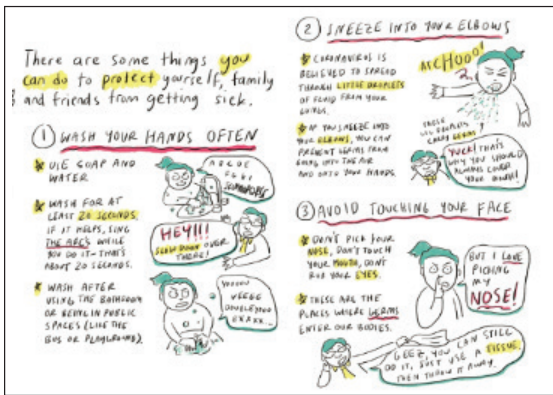 There are some things you
can do to protect yourself, family
and friends from getting sick.
① WASH YOUR HANDS OFTEN
USE SOAP AND
WATER
WASH FOR AT
LEAST 20 SECONDS.
IF IT HELPS, SING
THE ABC'S WHILE
YOU DO IT - THAT'S
ABOUT 20 SECONDS.
WASH AFTER
USING THE BATHROOM
OR BEING IN PUBLIC
SPACES (LIKE THE
BUS OR PLAYGROUND).
A B C D E
F G H I
HEY!!!
SLOW DOWN OVER
THERE!
② SNEEZE INTO YOUR ELBOWS
CORONAVIRUS IS
BELIEVED TO SPREAD
THROUGH LITTLE DROPLETS
OF FLUID FROM YOUR
LUNGS.
IF YOU SNEEZE INTO
YOUR ELBOWS, YOU CAN
PREVENT GERMS FROM
GOING INTO THE AIR
AND ONTO YOUR HANDS.
THESE
LIL DROPLETS
CARRY GERMS
YUCK! THAT'S
WHY YOU SHOULD
ALWAYS COVER
YOUR
③ AVOID TOUCHING YOUR FACE
DON'T PICK YOUR
NOSE, DON'T TOUCH
YOUR MOUTH, DON'T
RUB YOUR EYES.
THESE ARE THE
PLACES WHERE GERMS
ENTER OUR BODIES.
BUT I LOVE
PICKING
MY
NOSE!
GEEZ, YOU CAN STILL
DO IT, JUST USE A TISSUE.
THEN THROW IT AWAY.